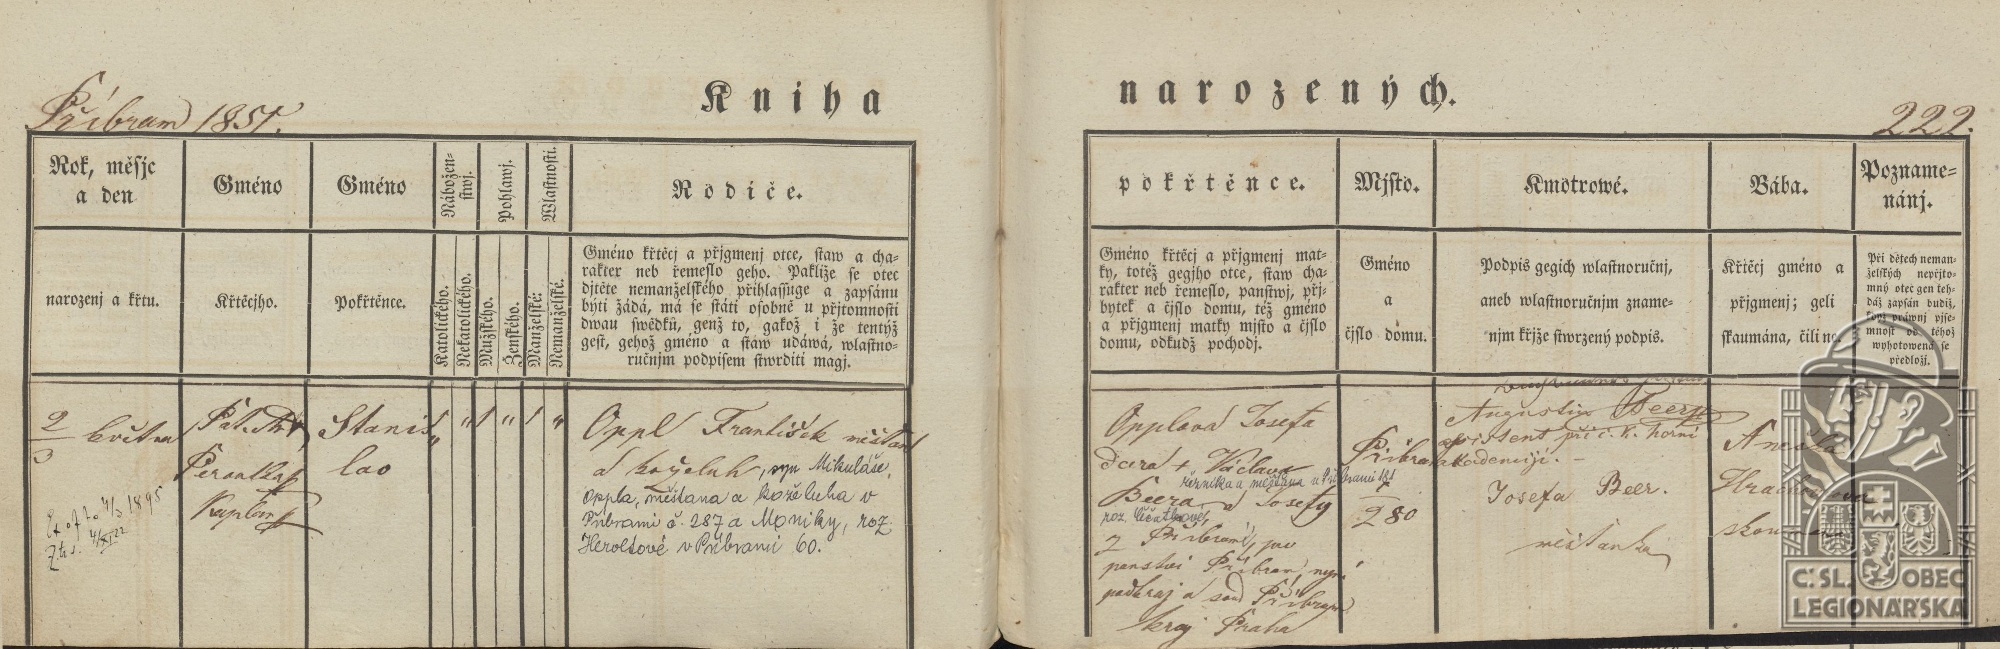 Příbram 1851.
Kniha
narozených.
222.
Rok, měsjc
a den
Gméno
Gméno
Nábožen-
stwj.
Pohlawj.
Wlastnosti.
Rodiče.
narozenj a křtu.
Křtěcjho.
Pokřtěnce.
Katolického.
Nekatolického.
Mužského.
Ženského.
Manželské:
Nemanželské.
Gméno křtěcj a přjgmenj otce, staw a cha-
rakter neb řemeslo geho. Pakliže se otec
djtěte nemanželského přihlassuge a zapsánu
býti žádá, má se státi osobně u přjtomnosti
dwau swědků, genž to, gakož i že tentýž
gest, gehož gméno a staw udáwá, wlastno-
ručnjm podpisem stwrditi magj.
2
3
května
Stanis
lao
Kaplan
Ex offo 4/3 1895
Oppl František měšťan
a koželuh, syn Mikuláše
Oppla, měšťana a koželuha v
Příbrami č. 287 a Moniky, roz.
Heroltové v Příbrami 60.
pokřtěnce.
Mjsto.
Kmotrowé.
Bába.
Pozname-
nánj.
Gméno křtěcj a přjgmenj mat-
ky, totéž gegjho otce, staw cha-
rakter neb řemeslo, panstwj, přj-
bytek a čjslo domu, též gméno
a přjgmenj matky mjsto a čjslo
domu, odkudž pochodj.
Gméno
a
čjslo domu.
Podpis gegich wlastnoručnj,
aneb wlastnoručnjm zname-
njm křjže stwrzený podpis.
Křtěcj gméno a
přjgmenj; geli
skaumána, čili ne.
Při dětech neman-
želských nepřjto-
mný otec gen teh-
dáž zapsán budiž,
když práwnj pjse-
mnost od téhož
wyhotowená se
předložj.
Opplová Josefa
dcera + Václava
řezníka a měšťana v Příbrami 181
Beera, a Josefy
z Příbrami, pro
panství Příbram, nyní
podkraj a soud Příbram
kraj Praha
Příbram
280
Augustin Beer
assistent při c. k. horní
akademii.
Josefa Beer.
měšťanka
Anežka
C.SL. OBEC
LEGIONÁŘSKÁ